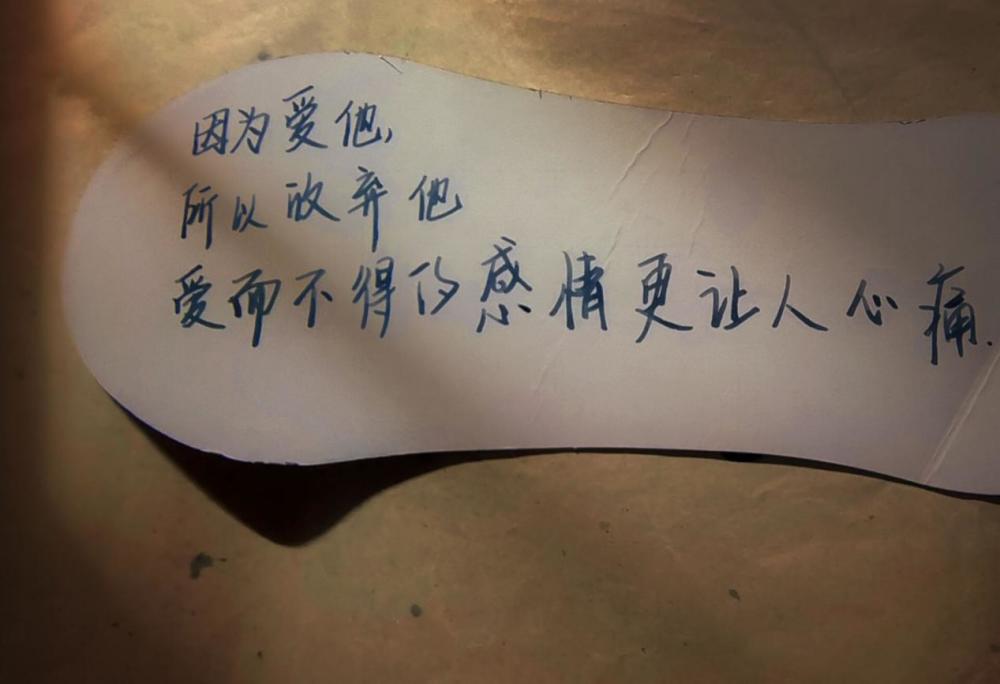 因为爱他,
所以放弃他
爱而不得的感情更让人心痛.